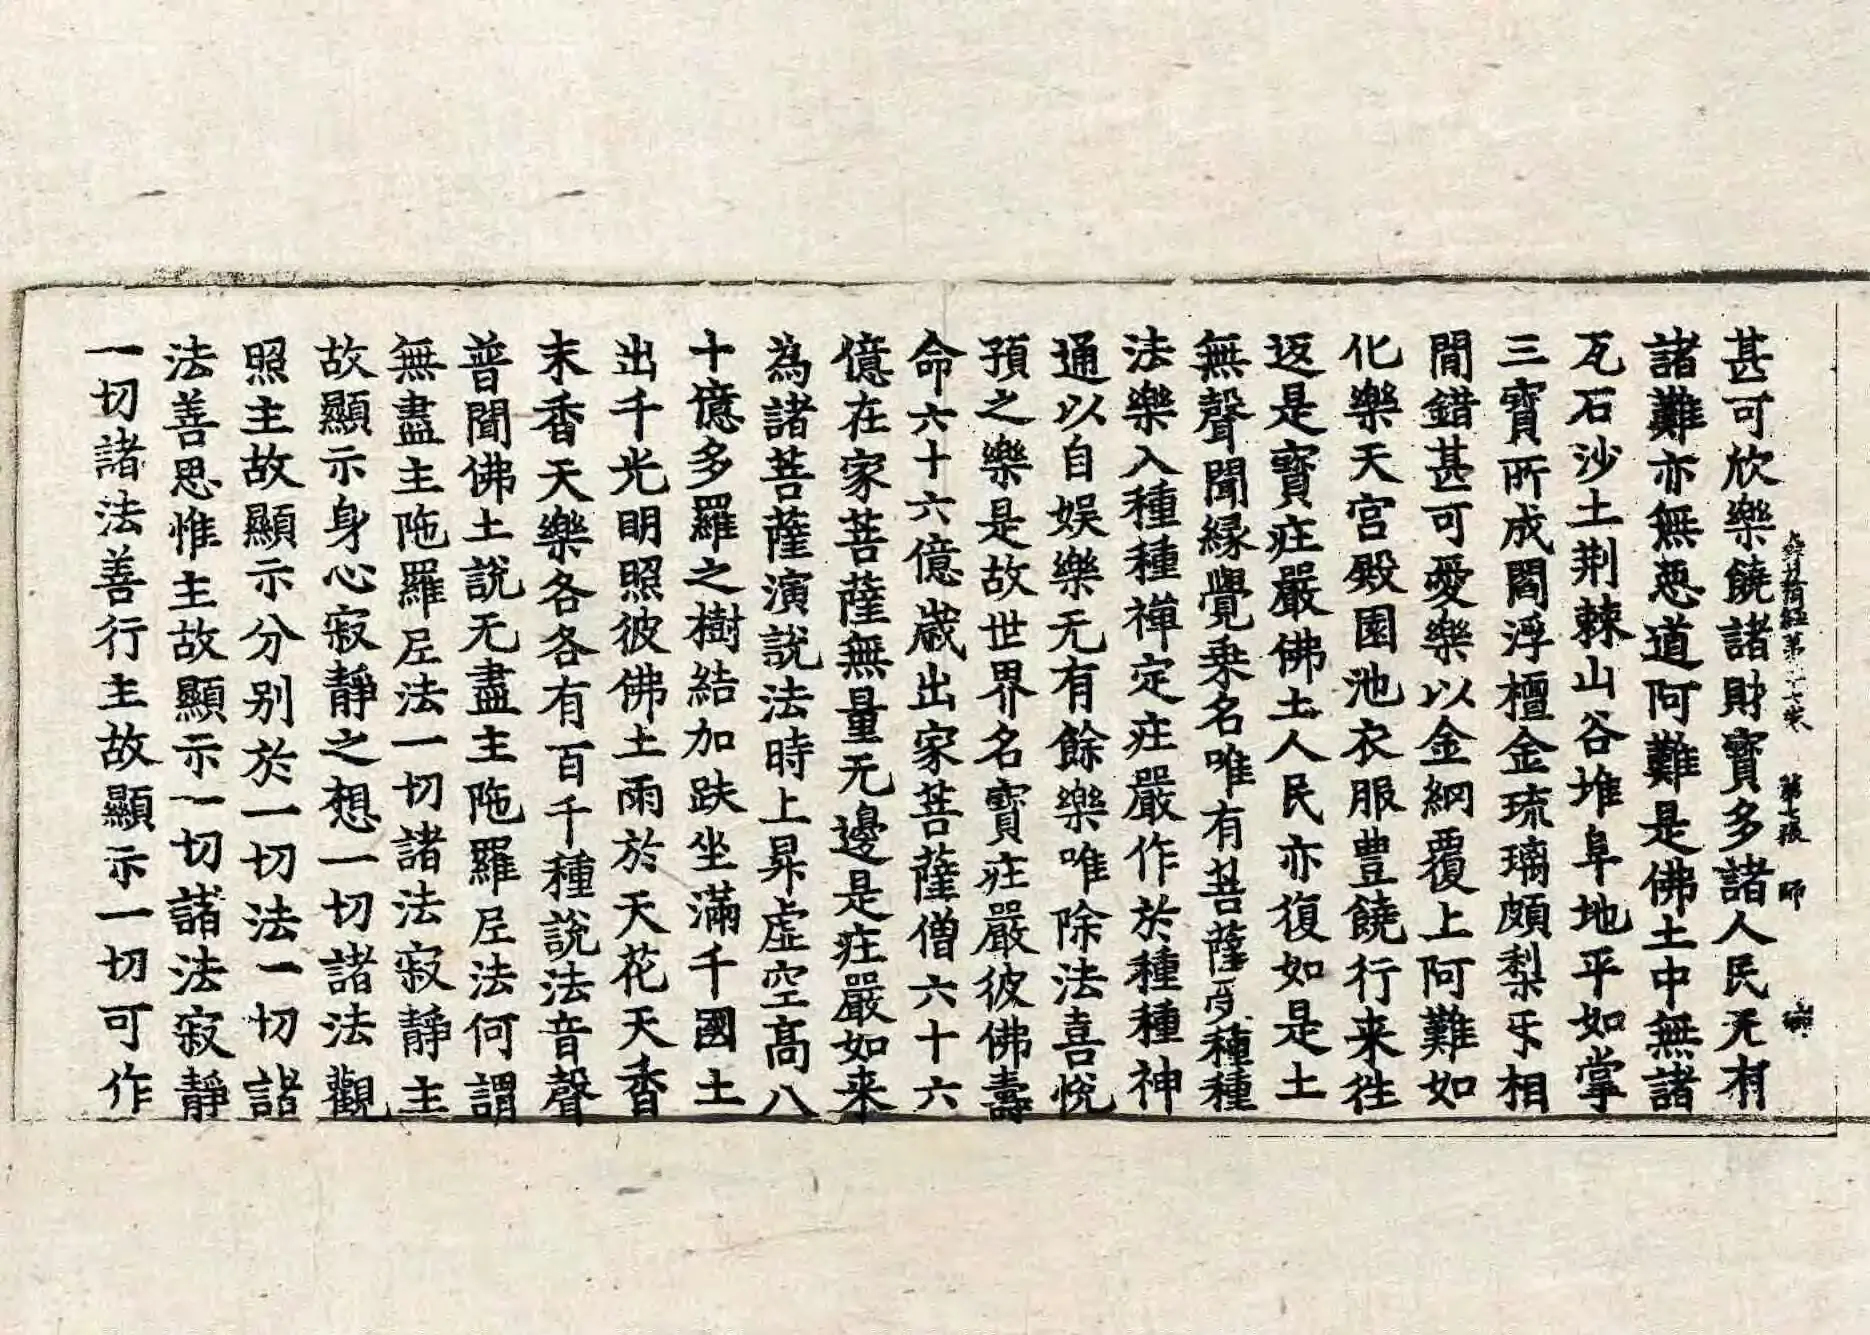 甚可欣樂饒諸財寶多諸人民无有
諸難亦無惡道阿難是佛土中無諸
瓦石沙土荆棘山谷堆阜地平如掌
三寶所成閻浮檀金琉璃頗梨㸦相
閒錯甚可愛樂以金網覆上阿難如
化樂天宫殿園池衣服豊饒行来徃
返是寳庄嚴佛土人民亦復如是土
無聲聞縁覺乗名唯有菩薩受種種
法樂入種種禅定庄嚴作於種種神
通以自娱樂无有餘樂唯除法喜恱
預之樂是故世界名寳庄嚴彼佛壽
命六十六億歳出家菩薩僧六十六
億在家菩薩無量无邊是庄嚴如来
為諸菩薩演說法時上昇虚空髙八
十億多羅之樹結加趺坐滿千國土
出千光明照彼佛土雨於天花天香
末香天樂各各有百千種說法音聲
普聞佛土說无盡主陁羅尼法何謂
無盡主陁羅尼法一切諸法寂靜主
故顯示身心寂靜之想一切諸法觀
照主故顯示分别於一切法一切諸
法善思惟主故顯示一切諸法寂靜
一切諸法善行主故顯示一切可作